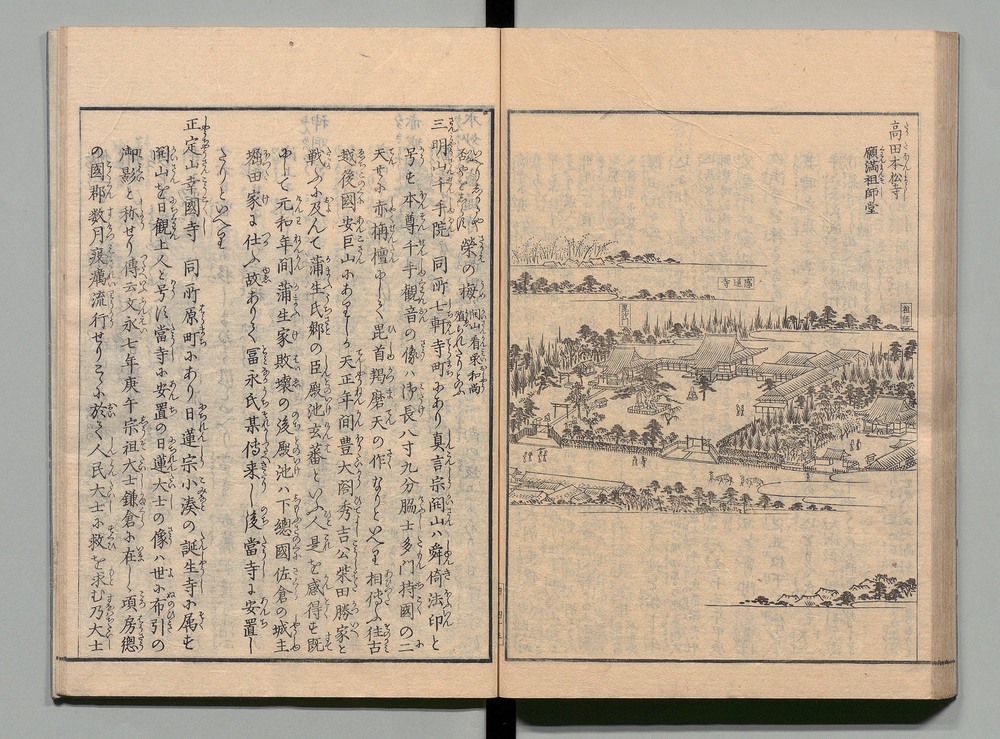 高田本松寺
願満祖師堂
祖師
感通寺
榮の梅
開山看栄和尚
三明山千手院 同所七軒寺町にあり真言宗開山ハ舜倚法印と
号も本尊千手觀音の像ハ御長八寸九分脇士多門持國の二
天共に赤栴檀にして毘首羯磨天の作なりといへり相傳ふ往古
越後國安巨山にありしか天正年間豊大閤秀吉公柴田勝家と
戦ふに及んて蒲生氏郷の臣殿池玄蕃といふ人是を感得も既
にして元和年間蒲生家敗壊の後殿池ハ下總國佐倉の城主
堀田家に仕ふ故ありて冨永氏某傳来し後當寺に安置し
たりといへり
正定山幸國寺 同所原町にあり日蓮宗小湊の誕生寺に属も
開山を日觀上人と号に當寺に安置の日蓮大士の像ハ世に布引の
御影と称せり傳云文永七年庚午宗祖大士鎌倉に在し頃房總
の國郡数月疫癘流行せりこゝに於て人民大士に救を求む乃大士